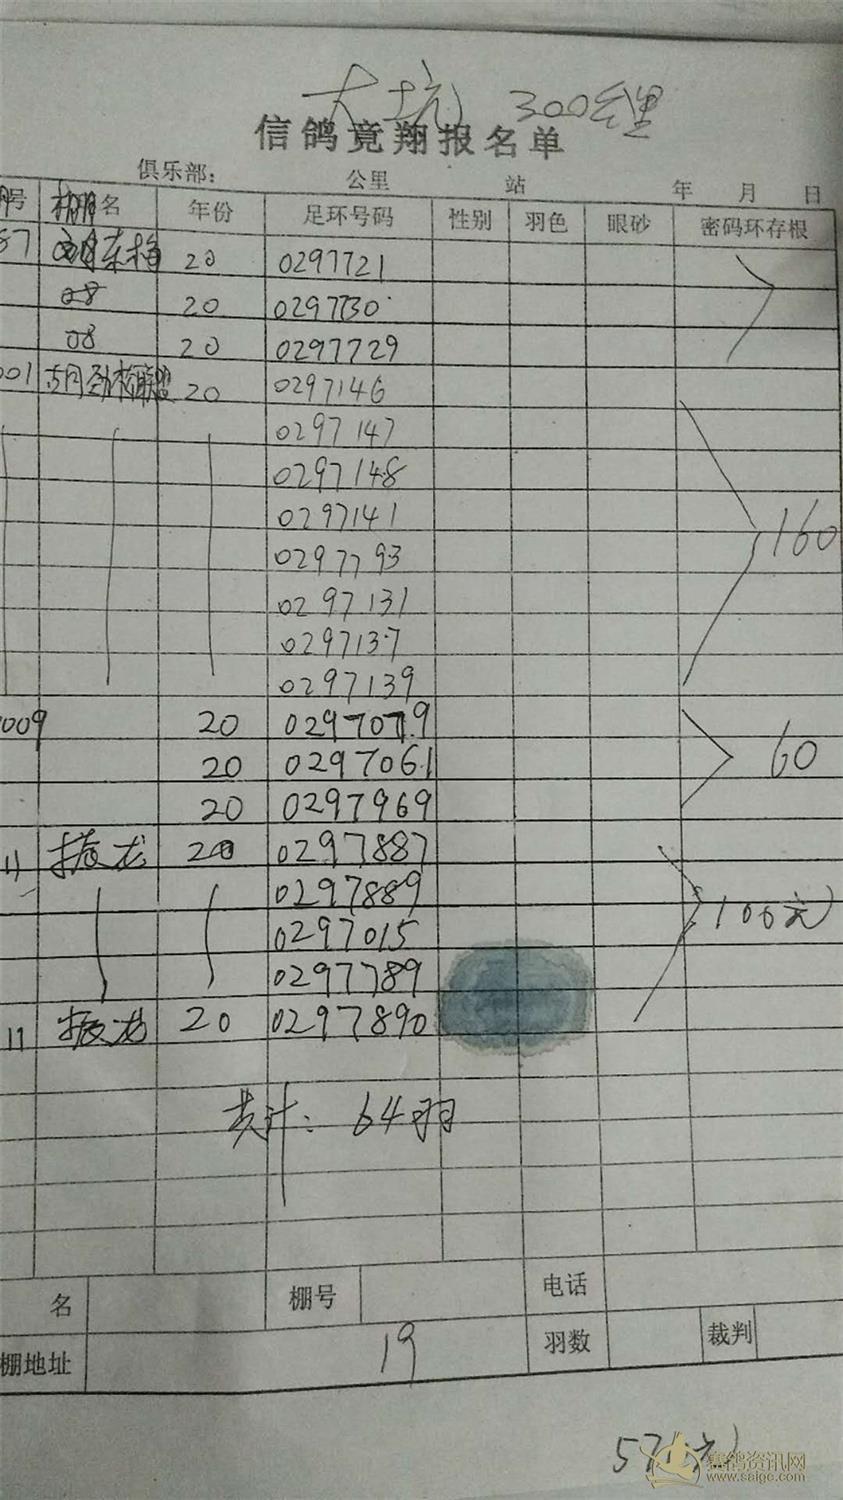 大坑 300公里
信鸽竟翔报名单
俱乐部： 公里 站 年 月 日
号 棚名 年份 足环号码 性别 羽色 眼砂 密码环存根
87 20 0297721
08 20 0297730
08 20 0297729
001 20 0297146
0297147
0297148
0297141
0297793 160
0297131
0297137
0297139
009 20 0297079
20 0297061 60
20 0297969
11 振龙 20 0297887
0297889
0297015 100元
0297789
11 振龙 20 0297890
共计：64羽
名 棚号 电话
棚地址 19 羽数 裁判
57
赛鸽资讯网
www.saige.com